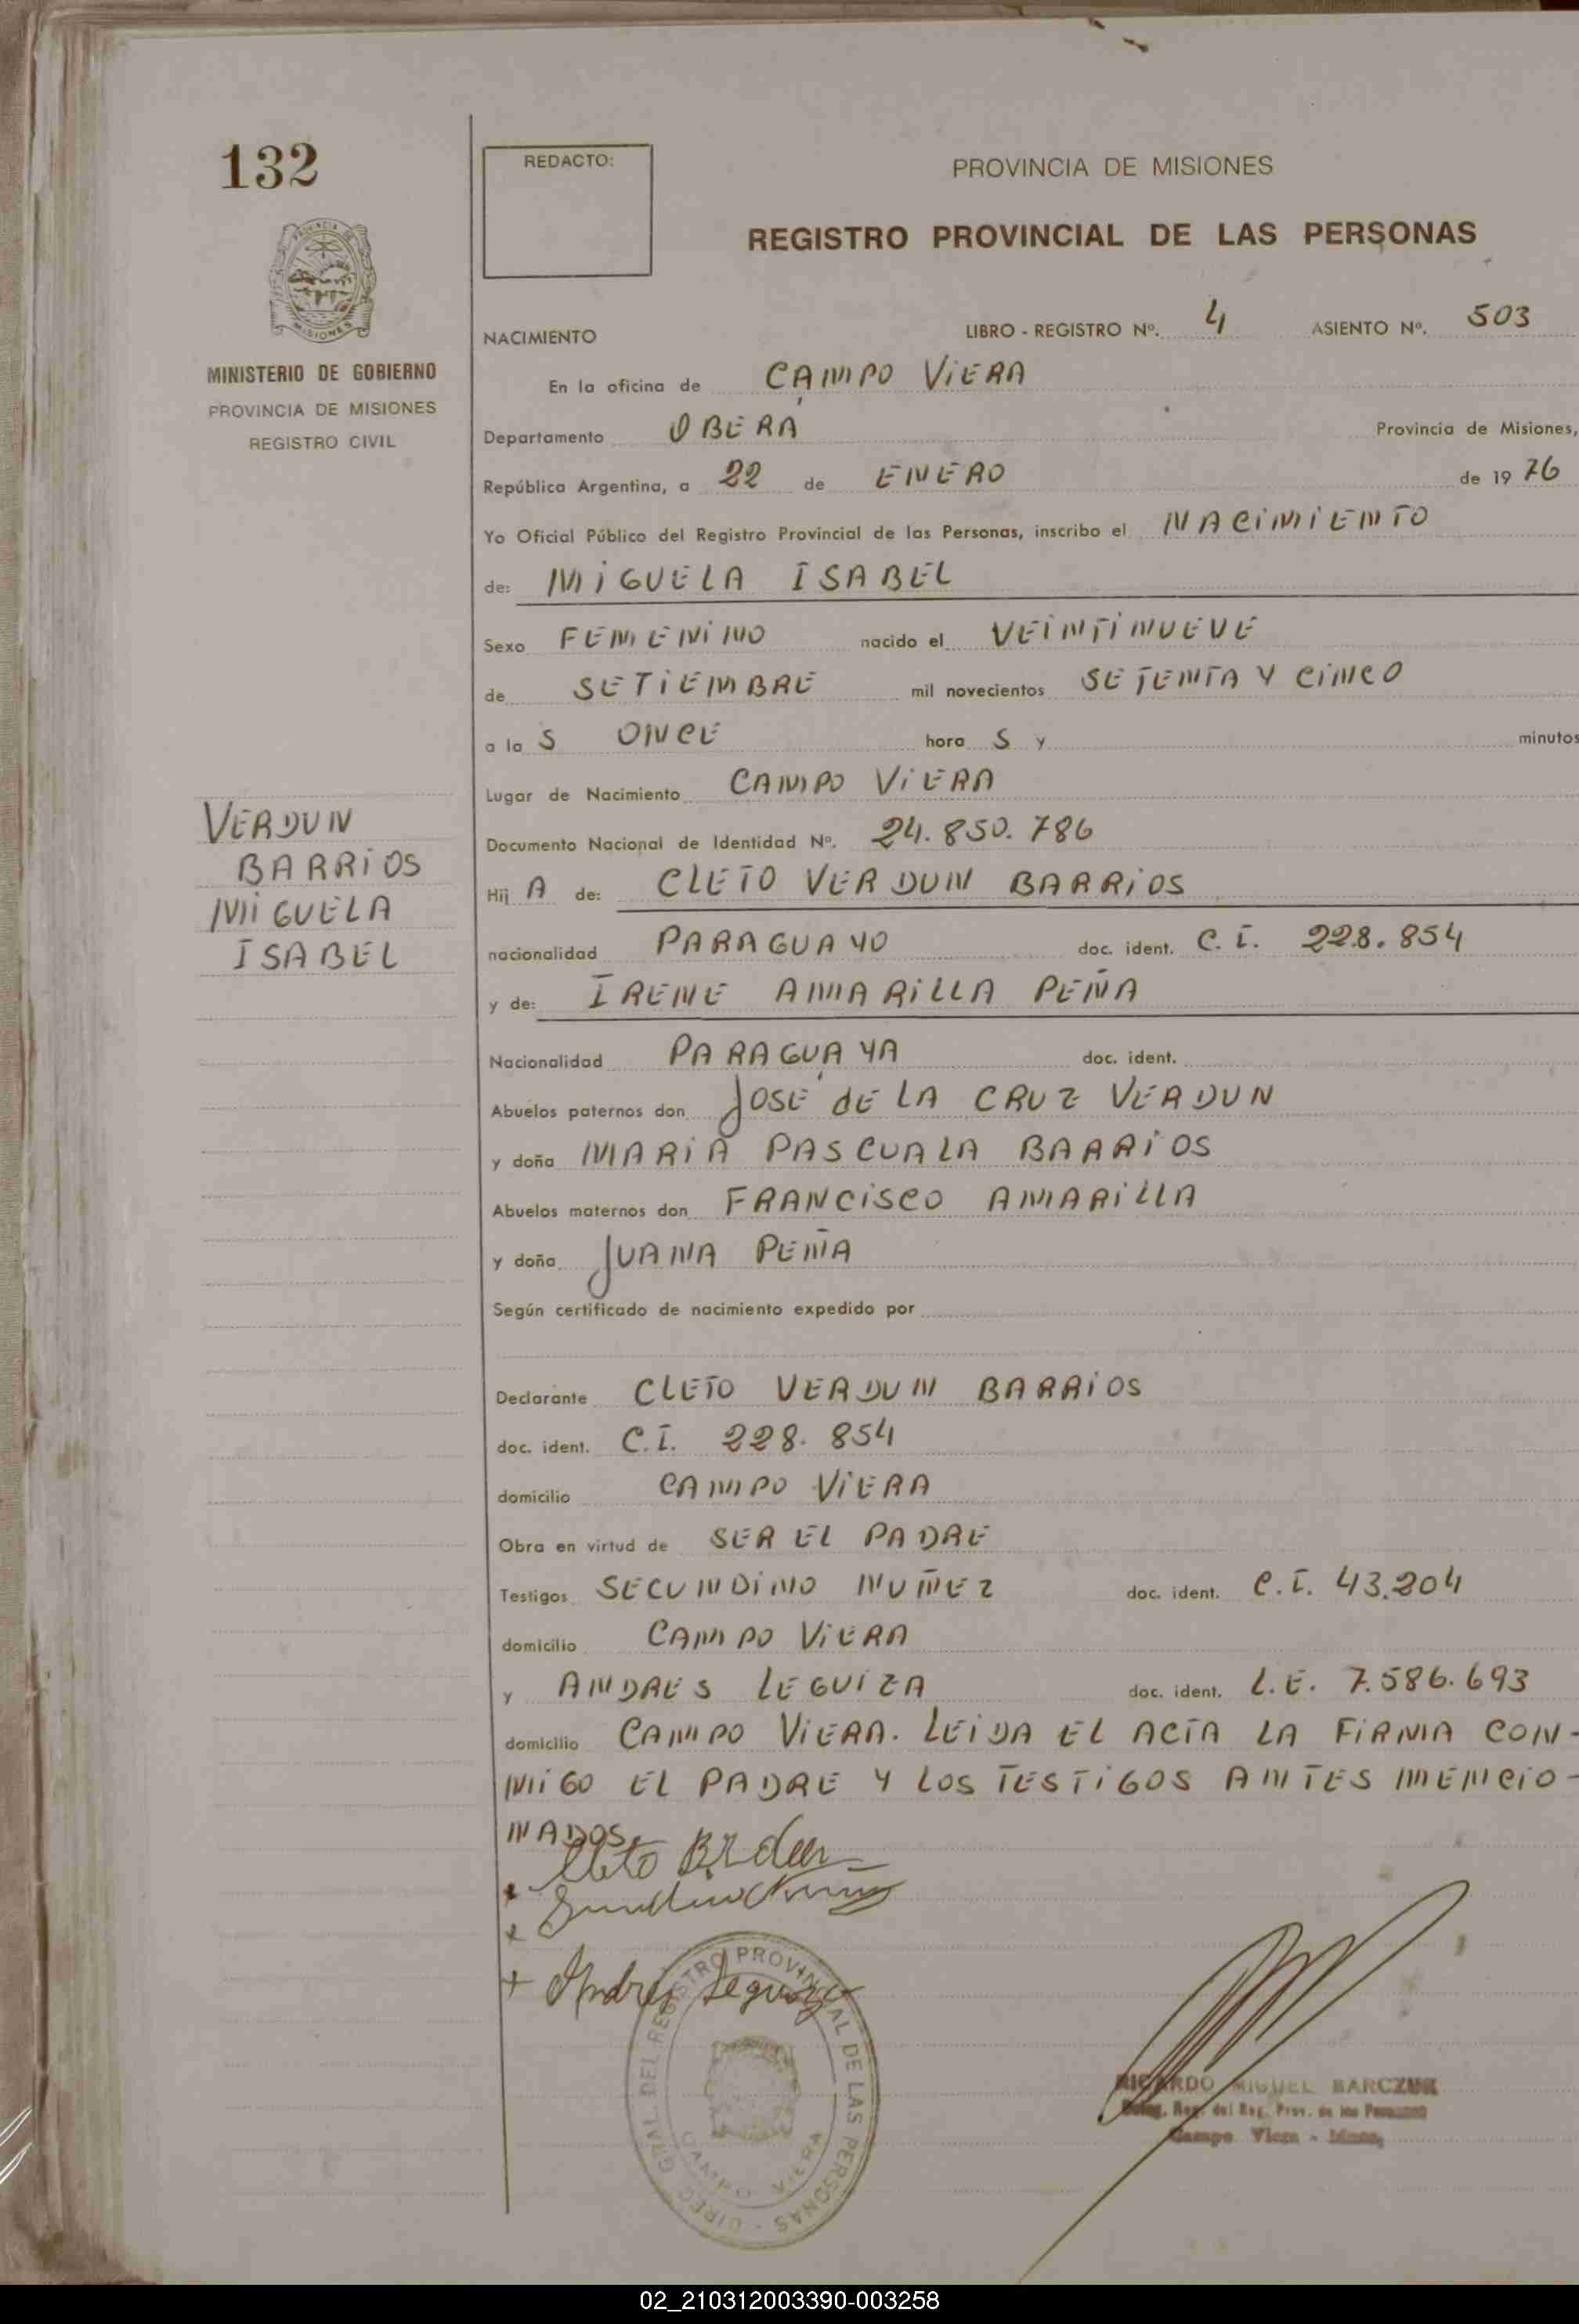 132
REDACTO:
PROVINCIA DE MISIONES
REGISTRO PROVINCIAL DE LAS PERSONAS
MISIONES
MINISTERIO DE GOBIERNO
PROVINCIA DE MISIONES
REGISTRO CIVIL
NACIMIENTO LIBRO - REGISTRO Nº. 4 ASIENTO Nº. 503
En la oficina de CAMPO VIERA
Departamento OBERÁ Provincia de Misiones,
República Argentina, a 22 de ENERO de 1976
Yo Oficial Público del Registro Provincial de las Personas, inscribo el NACIMIENTO
de: MIGUELA ISABEL
Sexo FEMENINO nacido el VEINTINUEVE
de SETIEMBRE mil novecientos SETENTA Y CINCO
a la S ONCE hora S y minutos
Lugar de Nacimiento CAMPO VIERA
Documento Nacional de Identidad Nº. 24.850.786
VERDUN
BARRIOS
MIGUELA
ISABEL
Hij A de: CLETO VERDUN BARRIOS
nacionalidad PARAGUAYO doc. ident. C.I. 228.854
y de: IRENE AMARILLA PEÑA
Nacionalidad PARAGUAYA doc. ident.
Abuelos paternos don JOSÉ DE LA CRUZ VERDUN
y doña MARÍA PASCUALA BARRIOS
Abuelos maternos don FRANCISCO AMARILLA
y doña JUANA PEÑA
Según certificado de nacimiento expedido por
Declarante CLETO VERDUN BARRIOS
doc. ident. C.I. 228.854
domicilio CAMPO VIERA
Obra en virtud de SER EL PADRE
Testigos SECUNDINO NUÑEZ doc. ident. C.I. 43.204
domicilio CAMPO VIERA
y ANDRES LEGUIZA doc. ident. L.E. 7.586.693
domicilio CAMPO VIERA. LEIDA EL ACTA LA FIRMA CON-
MIGO EL PADRE Y LOS TESTIGOS ANTES MENCIO-
NADOS.
Cleto
Andrés Leguiza
DIREC. GRAL. DEL REGISTRO PROVINCIAL DE LAS PERSONAS -
CAMPO VIERA
RICARDO MIGUEL BARCZUK
Deleg. Reg. del Reg. Prov. de las Personas
Campo Viera - Mnes.
02_210312003390-003258